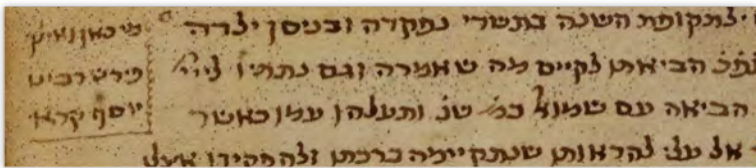 לתקופת השנה בתשרי נפקדה ובניסן ילדה
הביאתו לקיים מה שאמרה וגם נתתיו ליי'
הביאה עם שמואל שנ' ותעלהו עמו כאשר
אל עלי להראותו שנתקיימה ברכתו ולהפקידו אצלו
מיכאן ואיל'
פירש רבינו
יוסף קרא